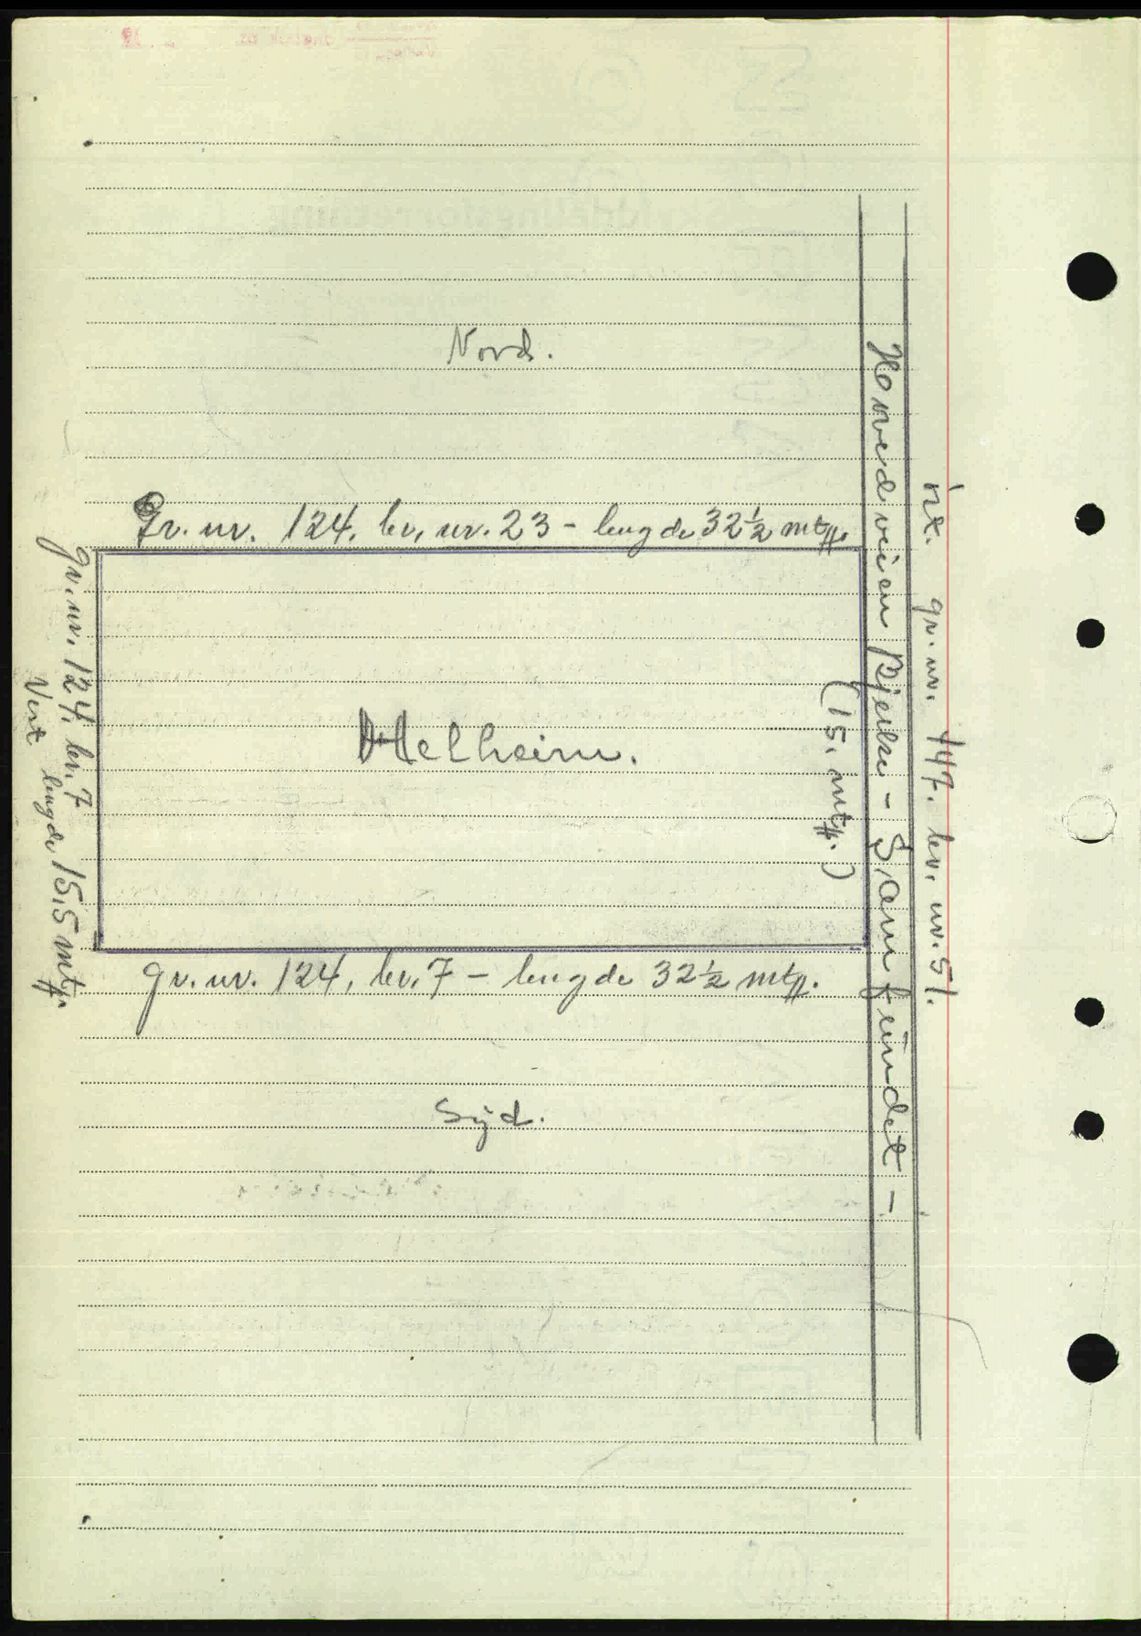 Nord.
Gr. nr. 124. br. nr. 23 - lengde 32½ mtr.
gr. nr. 124, br. 7
Vest lengde 15,5 mtr.
Helheim.
(15. mtr.)
Hovedveien Bjerke - Samfundet -
gr. nr. 147. br. nr. 51.
gr. nr. 124, br. 7 - lengde 32½ mtr.
Syd.